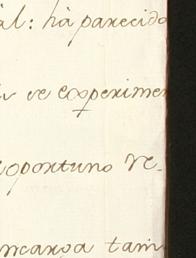 al: ha parecido
se experimen
oportuno re-
tam